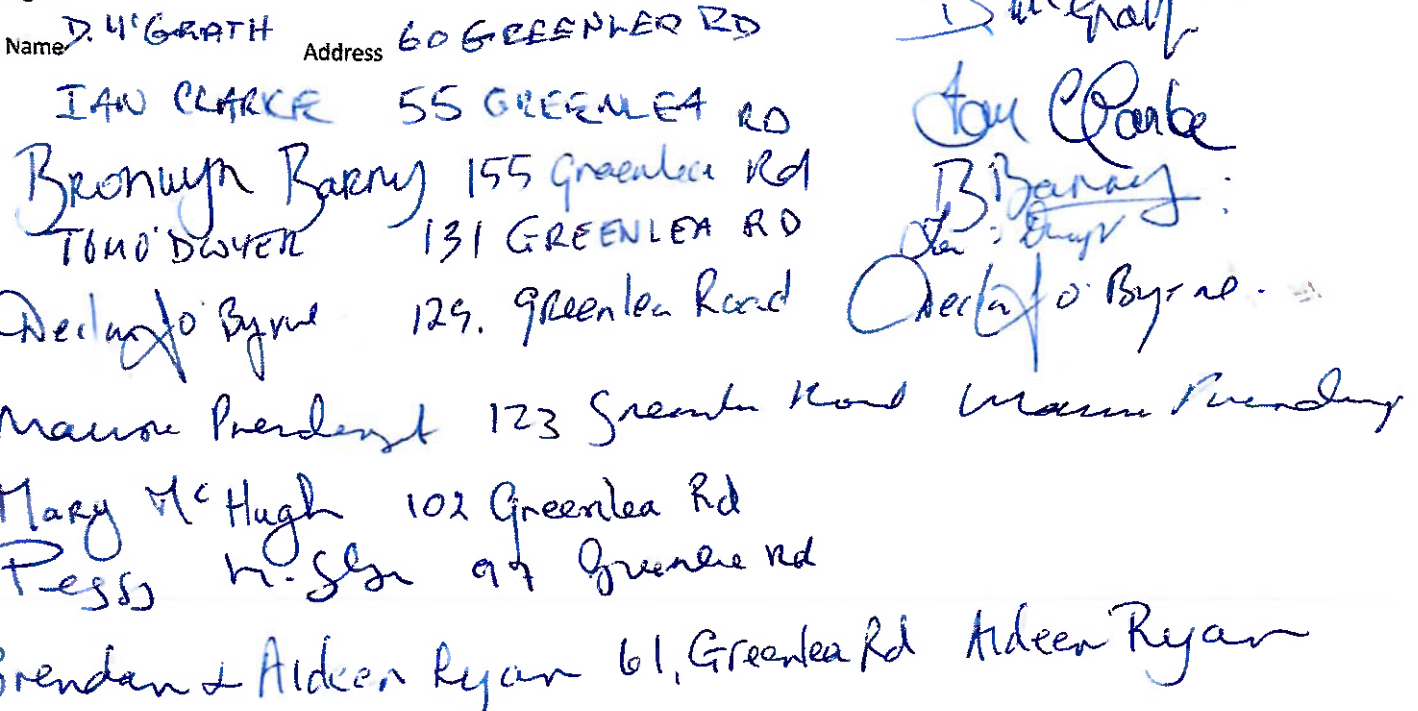 Name D. McGRATH Address 60 GREENLEA RD D McGrath
IAN CLARKE 55 GREENLEA RD Ian Clarke
BRONWYN BARRY 155 Greenlea Rd B Barry
TOM O'DWYER 131 GREENLEA RD
Declan O'Byrne 129. Greenlea Road Declan O'Byrne.
Prendergast 123 Greenlea Road Prendergast
Mary McHugh 102 Greenlea Rd
Peggy Greenlea Rd
Brendan & Aideen Ryan 61, Greenlea Rd Aideen Ryan